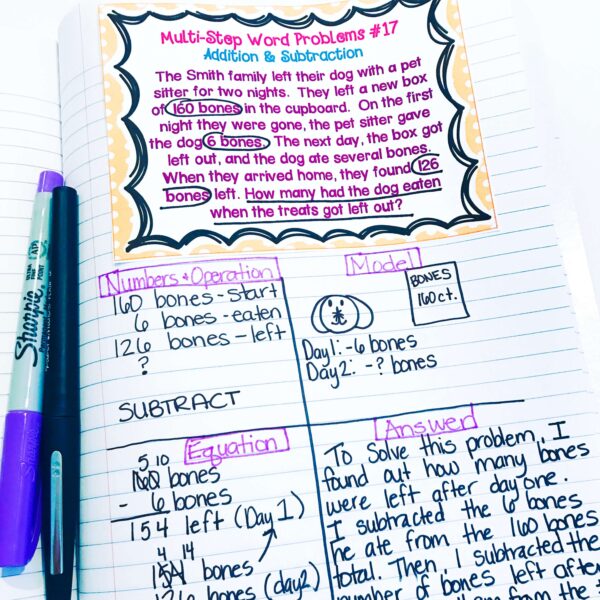 Multi-Step Word Problems #17
Addition & Subtraction
The Smith family left their dog with a pet
sitter for two nights. They left a new box
of 160 bones in the cupboard. On the first
night they were gone, the pet sitter gave
the dog 6 bones. The next day, the box got
left out, and the dog ate several bones.
When they arrived home, they found 126
bones left. How many had the dog eaten
when the treats got left out?
Numbers & Operation
160 bones - start
6 bones - eaten
126 bones - left
?
SUBTRACT
Model
BONES
160 ct.
Day 1: -6 bones
Day 2: -? bones
Equation
5 10
160 bones
- 6 bones
154 left (Day 1)
4 14
154 bones
126 bones (day 2)
Answer
To solve this problem, I
found out how many bones
were left after day one.
I subtracted the 6 bones
he ate from the 160 bones
total. Then, I subtracted the
number of bones left after
them from the
Sharpie